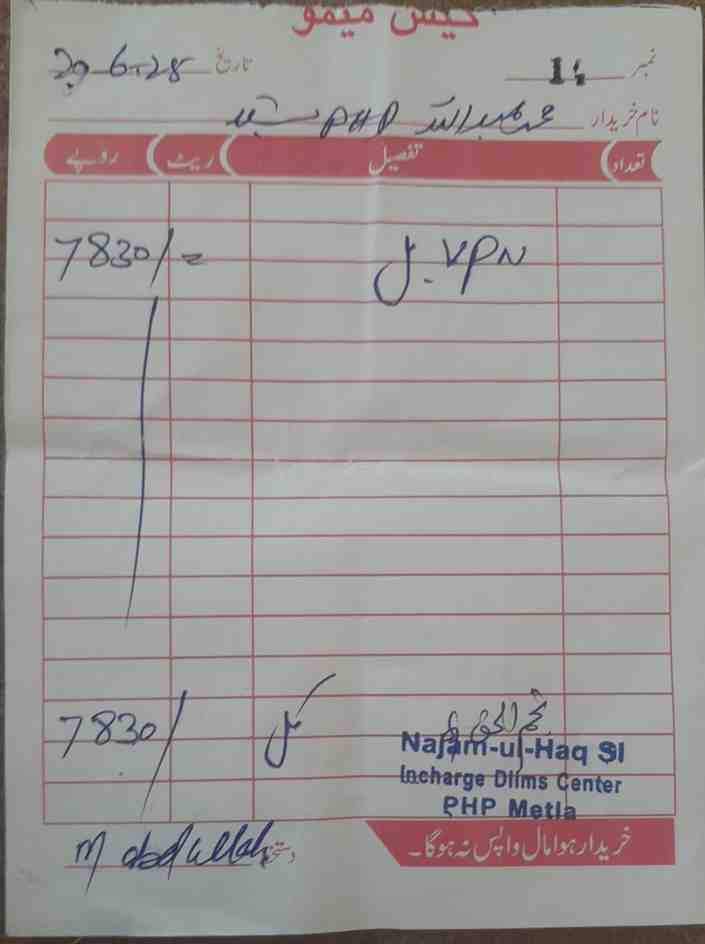 کیش میمو
نمبر 14 تاریخ 29-6-25
نام خریدار محمد عبداللہ PHP
تعداد تفصیل ریٹ روپے
VPN 7830/=
کل 7830/
نجم الحق
Najam-ul-Haq SI
Incharge Dlims Center
PHP Metla
خریدا ہوا مال واپس نہ ہوگا۔
دستخط M abdullah